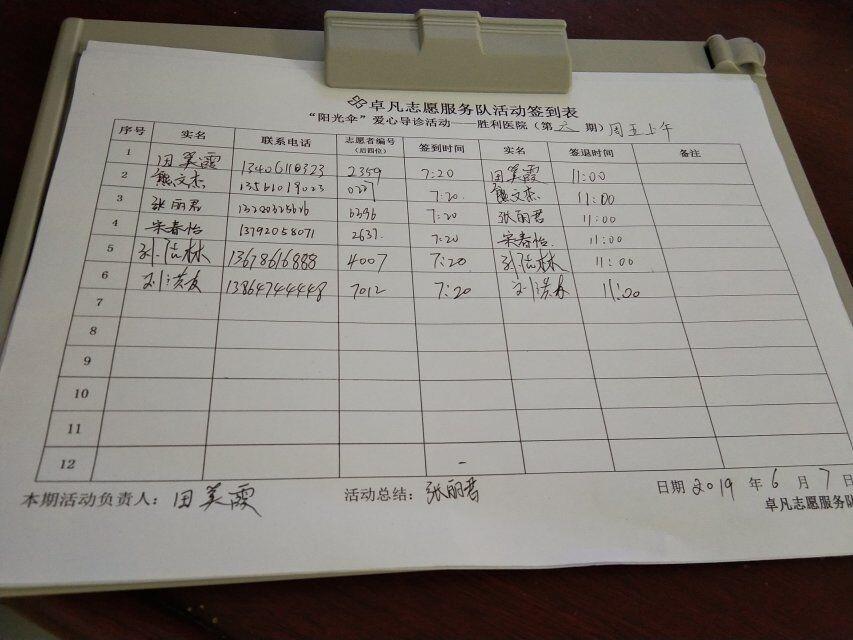 卓凡志愿服务队活动签到表
“阳光伞”爱心导诊活动——胜利医院(第六期)周五上午
序号 实名 联系电话 志愿者编号(后四位) 签到时间 实名 签退时间 备注
1 田美霞 13406110323 2359 7:20 田美霞 11:00
2 熊文杰 13561019023 7:20 熊文杰 11:00
3 张丽君 6396 7:20 张丽君 11:00
4 宋春怡 13792058071 2637 7:20 宋春怡 11:00
5 13678616888 4007 7:20 11:00
6 13864744448 7012 7:20 11:00
7
8
9
10
11
12
本期活动负责人:田美霞 活动总结:张丽君 日期 2019 年 6 月 7 日
卓凡志愿服务队